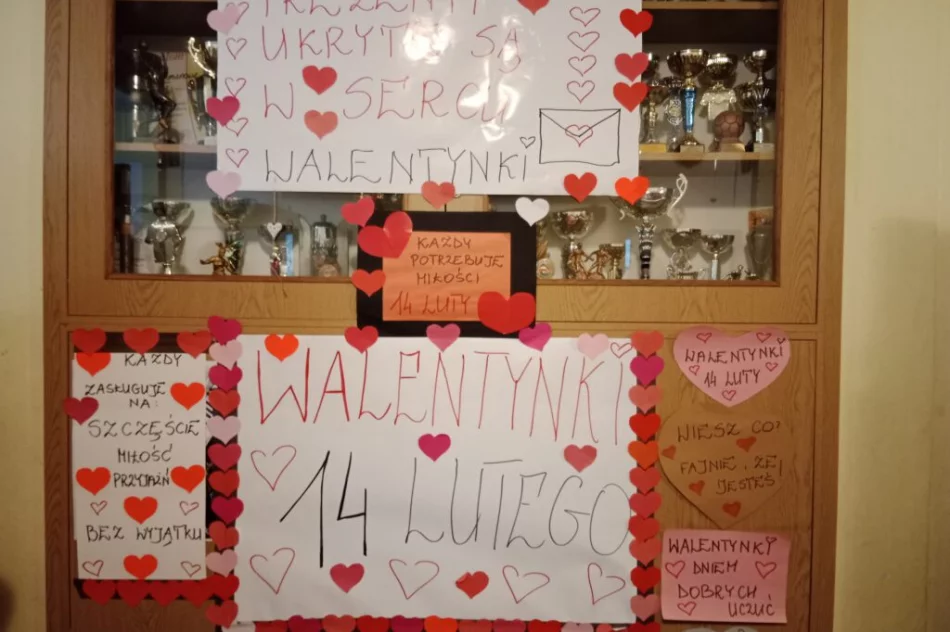 PREZENTY
UKRYTE SĄ
W SERCU
WALENTYNKI
KAŻDY
POTRZEBUJE
MIŁOŚCI
14 LUTY
KAŻDY
ZASŁUGUJE
NA:
SZCZĘŚCIE
MIŁOŚĆ
PRZYJAŹŃ
BEZ WYJĄTKU
WALENTYNKI
14 LUTEGO
WALENTYNKI
14 LUTY
WIESZ CO?
FAJNIE, ŻE
JESTEŚ
WALENTYNKI
DNIEM
DOBRYCH
UCZUĆ